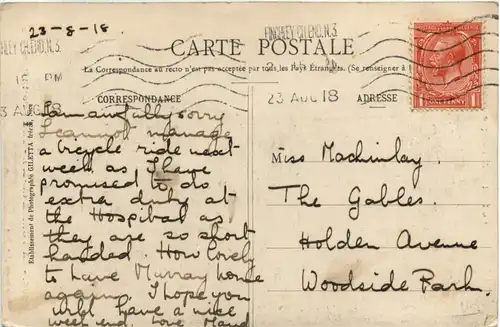 23-8-18
FINCHLEY CH.END.N.3.
CARTE POSTALE
La Correspondance au recto n'est pas acceptée par tous les Pays Etrangers. (Se renseigner à
PM
23 AUG 18
CORRESPONDANCE
ADRESSE
ONE PENNY
Etablissement de Photographie GILETTA frères, Nice
I am awfully sorry
I cannot manage
a bicycle ride next
week as I have
promised to do
extra duty at
the Hospital as
they are so short
handed. How lovely
to have Murray home
again. I hope you
will have a nice
week end. Love Maud
Miss Machinlay.
The Gables.
Holden Avenue
Woodside Park.